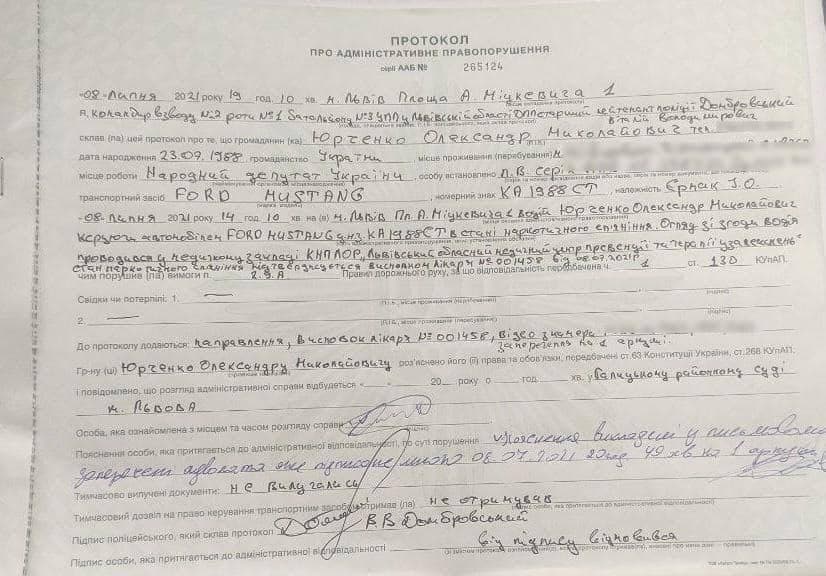 ПРОТОКОЛ
ПРО АДМІНІСТРАТИВНЕ ПРАВОПОРУШЕННЯ
серії ААБ № 265124
«08» Липня 2021 року 19 год. 10 хв. м. Львів Площа А. Міцкевича 1
Я, Командир взводу №2 роти №1 батальйону №3 УПП у Львівській області ДПП старший лейтенант поліції Домбровський
Віталій Володимирович
склав (ла) цей протокол про те, що громадянин (ка) Юрченко Олександр Миколайович тел.
дата народження 23.09.1988 громадянство України, місце проживання (перебування) м.
місце роботи Народний депутат України особу встановлено П.В. серія
транспортний засіб FORD MUSTANG, номерний знак КА1988СТ, належність Єрмак І.О.
«08» Липня 2021 року 14 год. 10 хв. на (в) м. Львів Пл. А. Міцкевича 1 водій Юрченко Олександр Миколайович
керуючи автомобілем FORD MUSTANG днз. КА1988СТ в стані наркотичного сп'яніння. Огляд зі згоди водія
проводився у медичному закладі КНП ЛОР „Львівський обласний медичний центр превенції та терапії узалежнень"
стан наркотичного сп'яніння підтверджується висновком лікаря №001458 від 08.07.2021р.
чим порушив (ла) вимоги п. 2.9.А Правил дорожнього руху, за що відповідальність передбачена ч. 1 ст. 130 КУпАП.
Свідки чи потерпілі: 1.
(П.І.б., місце проживання (перебування)) (підпис)
2.
(П.І.б., місце проживання (перебування)) (підпис)
До протоколу додаються: направлення, висновок лікаря №001458, відео з камери
заперечення на 1 аркуші.
Гр-ну (ці) Юрченко Олександру Миколайовичу роз'яснено його (її) права та обов'язки, передбачені ст.63 Конституції України, ст.268 КУпАП,
і повідомлено, що розгляд адміністративної справи відбудеться « » 20 року о год. хв. у Галицькому районному суді
м. Львова
Особа, яка ознайомлена з місцем та часом розгляду справи
Пояснення особи, яка притягається до адміністративної відповідальності, по суті порушення Пояснення викладені у письмовому
запереченні адвоката 08.07.2021 20 год 49 хв на 1 аркуші
Тимчасово вилучені документи: не вилучались
Тимчасовий дозвіл на право керування транспортним засобом отримав (ла) не отримував
Підпис поліцейського, який склав протокол В.В Домбровський
Підпис особи, яка притягається до адміністративної відповідальності від підпису відмовився